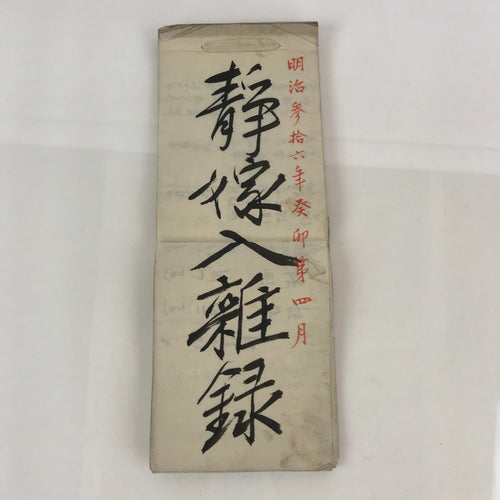 明治参拾六年癸卯第四月
静嫁入雜録